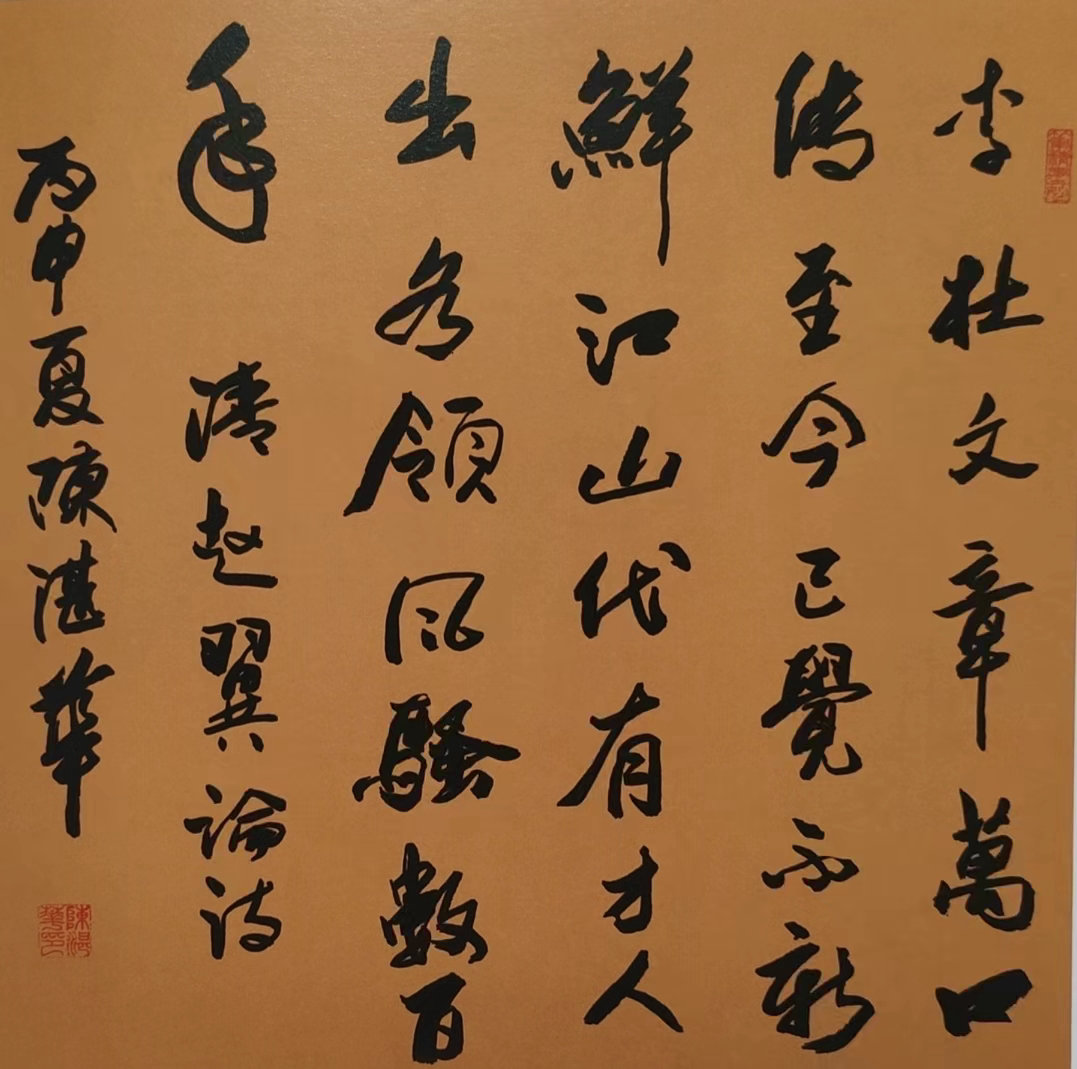 李杜文章萬口
傳至今已覺不新
鮮江山代有才人
出各領風騷數百
年 清趙翼論詩
丙申夏陳湛華
陳湛華印